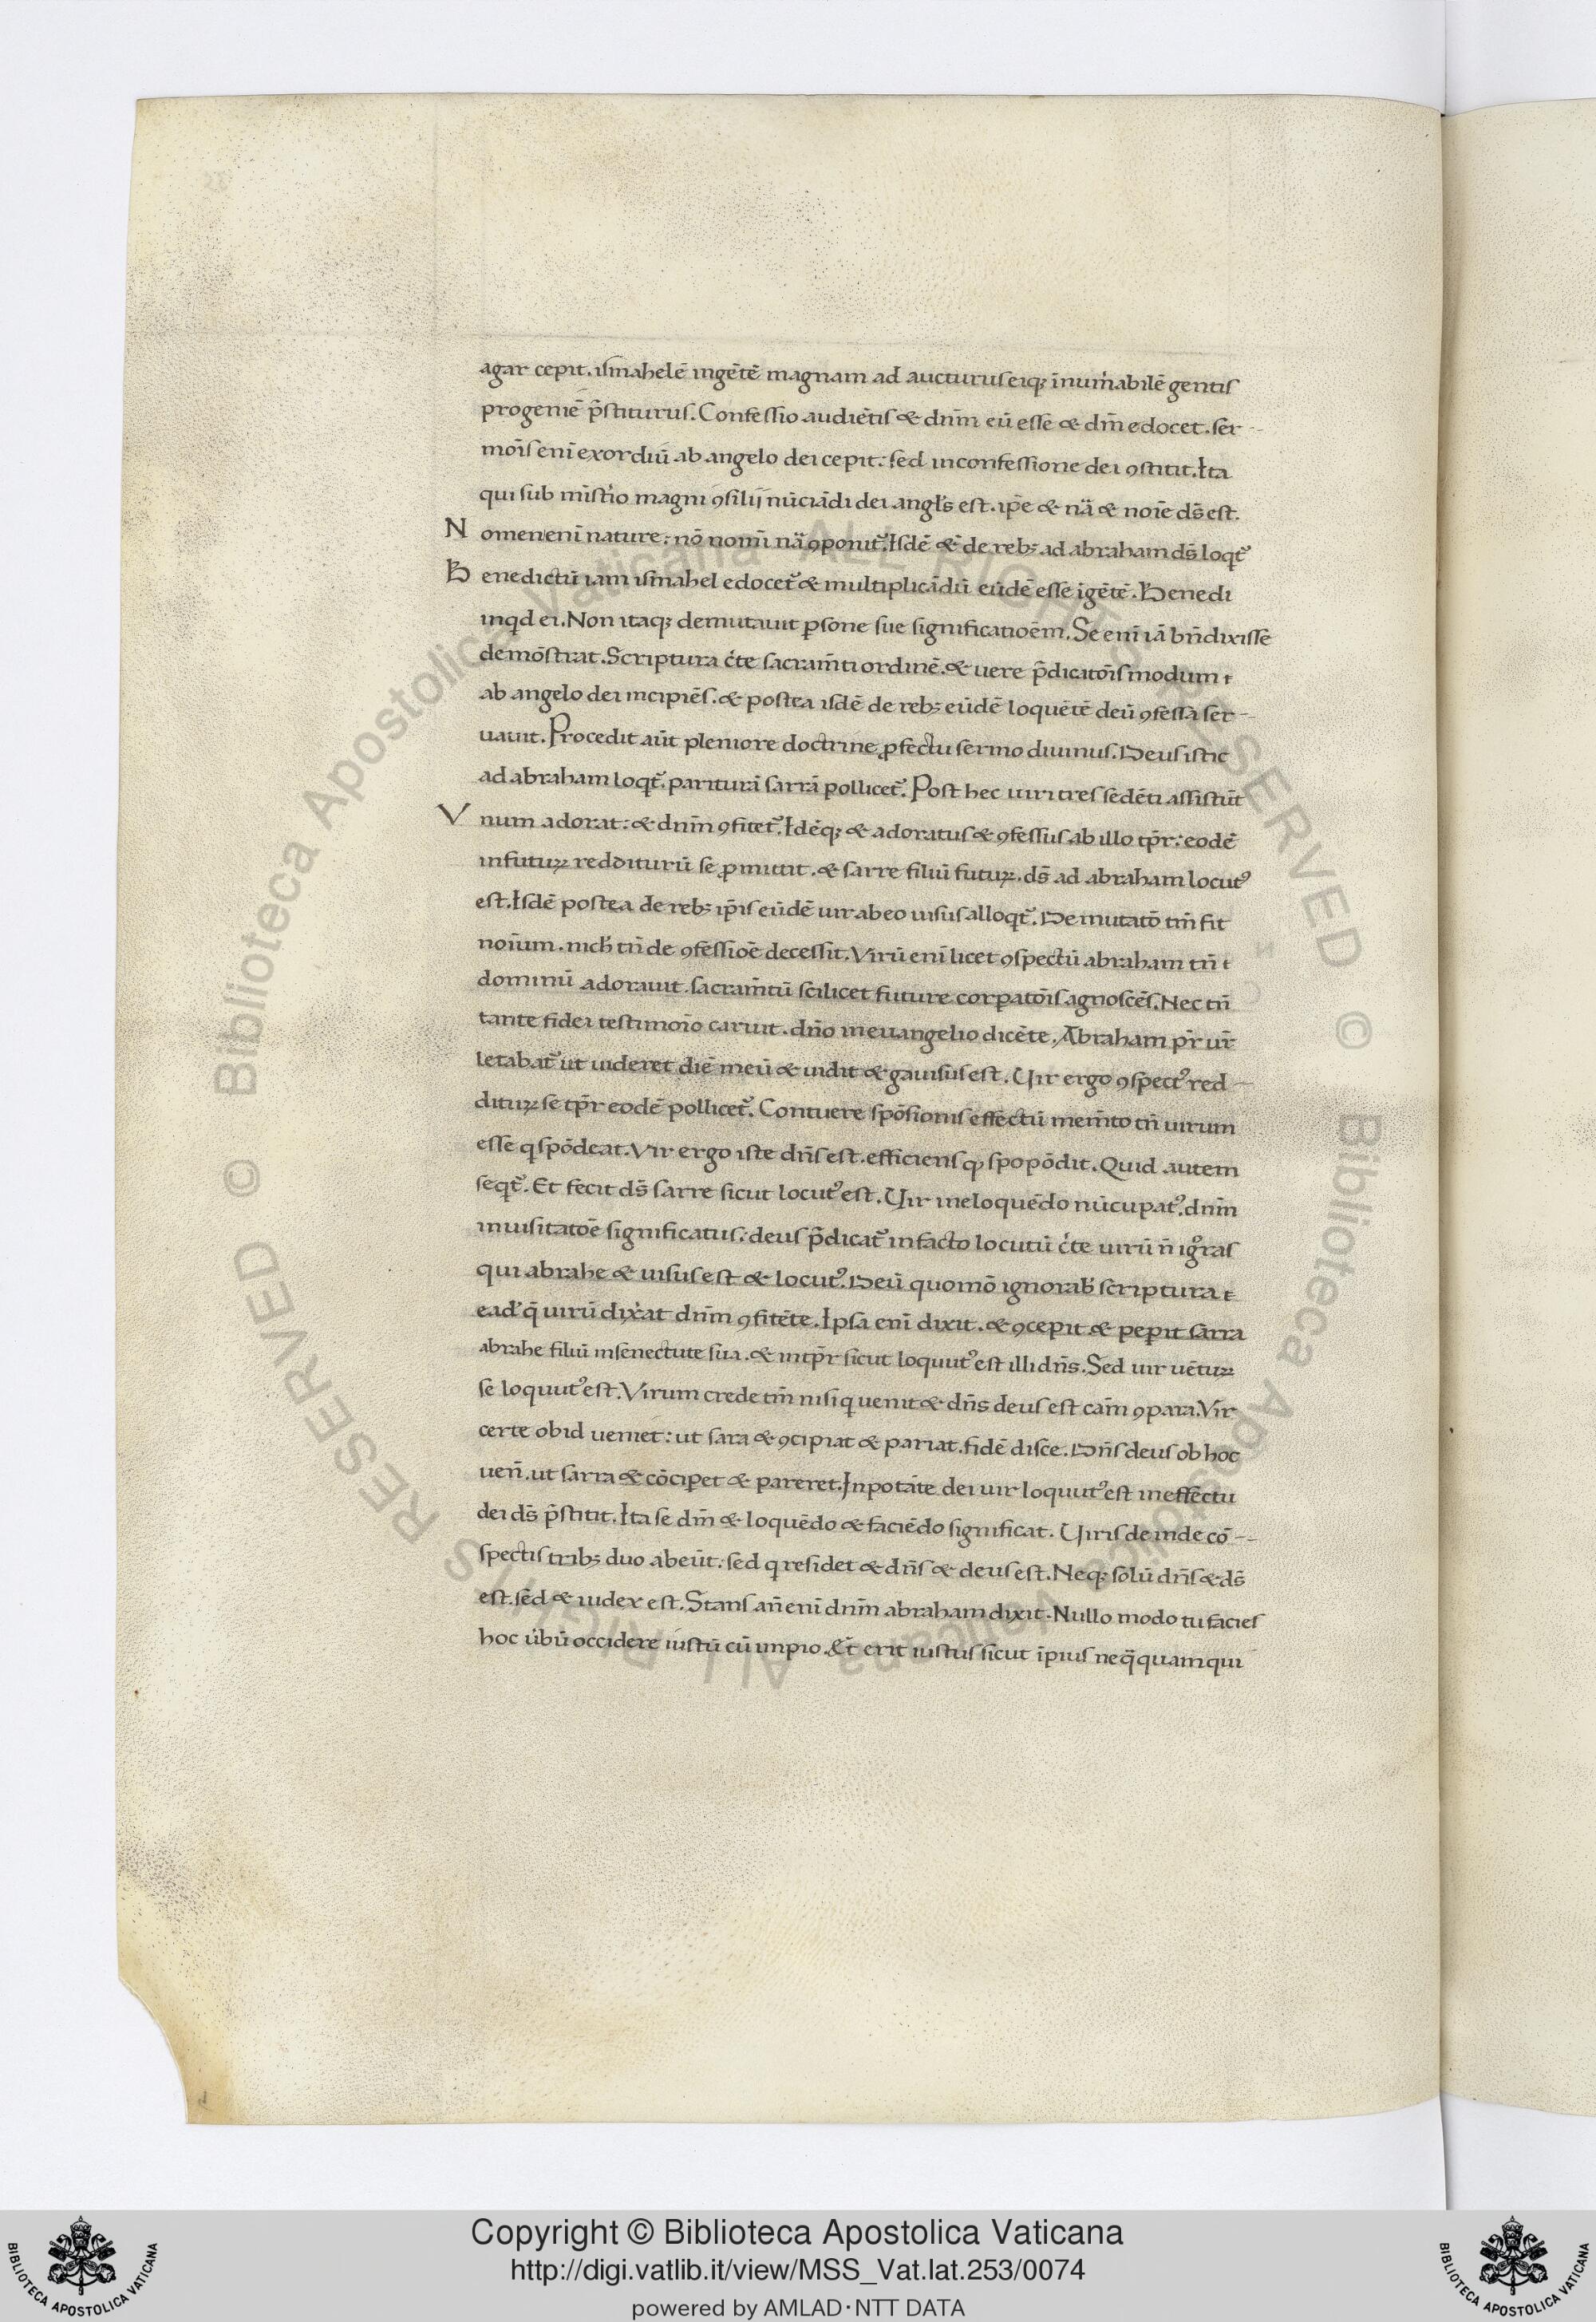 agar cepit. ismahelē ingētē magnam ad aucturus eiqꝫ īnum̄abilē gentis
progeniē p̄stiturus. Confessio audiētis & dnm̄ eū esse & dm̄ edocet. ser-
mōis enī exordiū ab angelo dei cepit: sed inconfessione dei ꝯstitit. Ita
qui sub mīst̄io magni ꝯsilij nūciādi dei angl̄s est. ip̄e & nā & noīe ds̄ est.
N omen enī nature: nō nomī nā ꝯponit᷑. Isdē &̄ de rebꝫ ad abraham ds̄ loqt᷑
B enedictū iam ismahel edocet᷑ & multiplicādū eūdē esse īgētē. Benedi
inqd ei. Non itaqꝫ demutauit ꝑsone sue significatioēm. Se enī iā bn̄dixisse
demōstrat. Scriptura c̄te sacram̄ti ordinē. & uere p̄dicatōis modum t
ab angelo dei incipiēs. & postea isdē de rebꝫ eūdē loquētē deū ꝯfessa ser-
uauit. Procedit aūt pleniore doctrine ꝓfectu sermo diuinus. Deus istic
ad abraham loqt᷑. pariturā sarrā pollicet᷑. Post hec uiri tres sedēti assistūt
V num adorat: & dnm̄ ꝯfitet᷑. Idēqꝫ & adoratus & ꝯfessus ab illo tp̄r: eodē
infutuꝝ redditurū se ꝓmittit. & sarre filiū futuꝝ. ds̄ ad abraham locutꝰ
est. Isdē postea de rebꝫ ip̄is eūdē uir ab eo uisus alloqt᷑. Demutatō tm̄ fit
noīum. nich̄ tn̄ de ꝯfessiōe decessit. Virū enī licet ꝯspectū abraham tn̄ t
dominū adorauit. sacram̄tū scilicet future corꝑatōis agnoscēs. Nec tn̄
tante fidei testimoīo caruit. dn̄o in euangelio dicēte. Abraham pr̄ ur̄
letabat᷑ ut uideret diē meū & uidit & gauisus est. Uir ergo ꝯspectꝰ red-
dituꝝ se tp̄r eodē pollicet᷑. Contuere spōsionis effectū mem̄to tn̄ uirum
esse q spōdeat. Vir ergo iste dn̄s est. efficiens qꝫ spopōdit. Quid autem
seqt᷑. Et fecit ds̄ sarre sicut locutꝰ est. Uir in eloquēdo nūcupatꝰ. dnm̄
inuisitatōe significatus: deus p̄dicat᷑ in facto locutū c̄te uirū n̄ ig͛ras
qui abrahe & uisus est & locutꝰ. Deū quomō ignorab̄ scriptura t
ead̄ q̄ uirū dix̄at dnm̄ ꝯfitēte. Ipsa enī dixit. & ꝯcepit & peꝑit sarra
abrahe filiū insenectute sua. & intp̄r sicut loquutꝰ est illi dn̄s. Sed uir uētuꝝ
se loquutꝰ est. Virum crede tm̄ nisi q uenit & dn̄s deus est cām ꝯpara. Vir
certe ob id ueniet: ut sara & ꝯcipiat & pariat. fidē disce. Dn̄s deus ob hoc
uen̄. ut sarra & cōciꝑet & pareret. In potāte dei uir loquutꝰ est in effectu
dei ds̄ p̄stitit. Ita se dm̄ & loquēdo & faciēdo significat. Uiris deinde cō-
spectis tribꝫ duo abeūt: sed q residet & dn̄s & deus est. Neqꝫ solū dn̄s & ds̄
est. sed & iudex est. Stans an̄ enī dnm̄ abraham dixit. Nullo modo tu facies
hoc ūbū occidere iustū cū impio. Et erit iustus sicut īpius neq̄quam qui
Copyright © Biblioteca Apostolica Vaticana
http://digi.vatlib.it/view/MSS_Vat.lat.253/0074
powered by AMLAD·NTT DATA